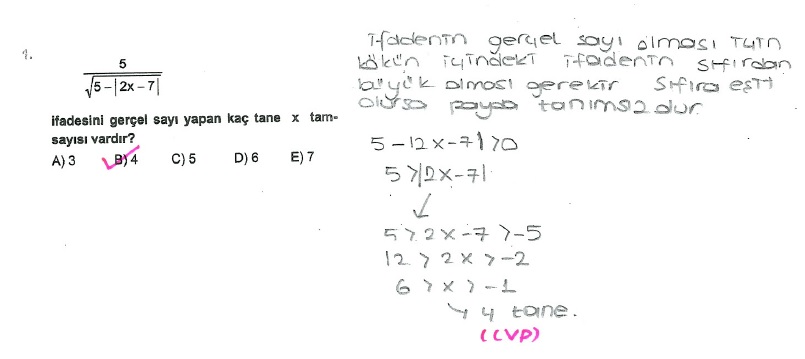 1.
5
√5-|2x-7|
ifadesini gerçel sayı yapan kaç tane x tam-
sayısı vardır?
A) 3 B) 4 C) 5 D) 6 E) 7
ifadenin gerçel sayı olması için
kökün içindeki ifadenin sıfırdan
büyük olması gerekir sıfıra eşit
olursa payda tanımsızdur.
5-|2x-7|>0
5>|2x-7|
↓
5>2x-7>-5
12>2x>-2
6>x>-1
↳ 4 tane.
(CVP)